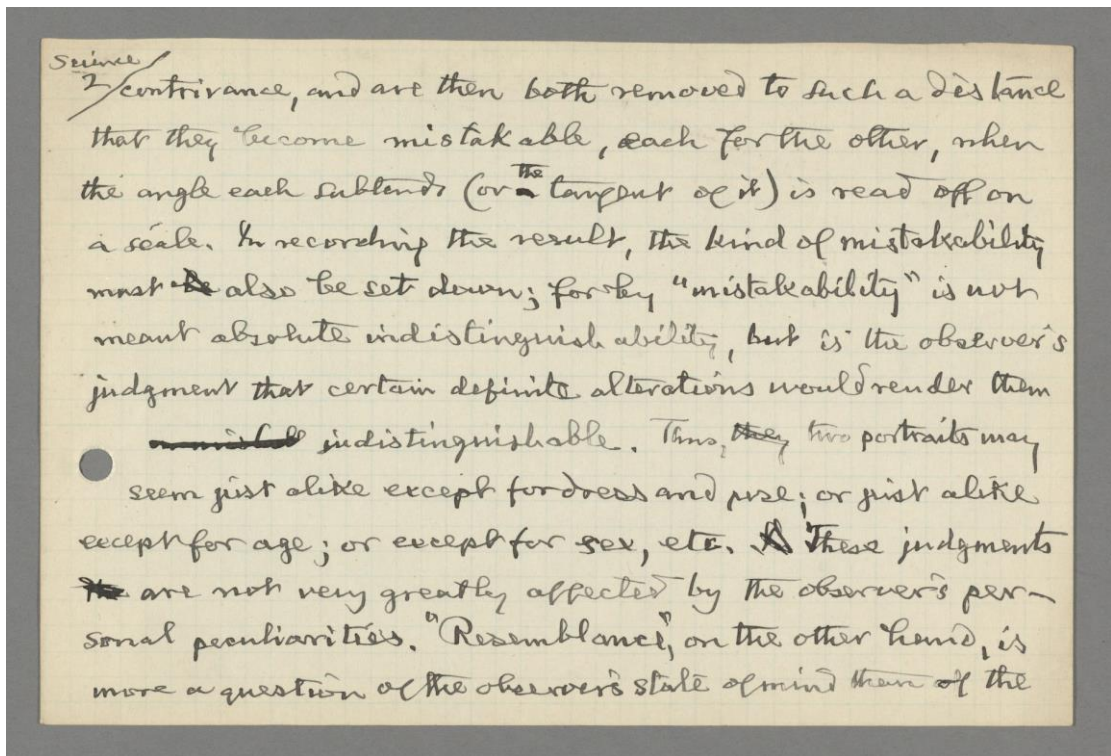 Science
2/ contrivance, and are then both removed to such a distance
that they become mistakable, each for the other, when
the angle each subtends (or the tangent of it) is read off on
a scale. In recording the result, the kind of mistakability
must also be set down; for by "mistakability" is not
meant absolute indistinguishability, but is the observer's
judgment that certain definite alterations would render them
indistinguishable. Thus, two portraits may
seem just alike except for dress and pose; or just alike
except for age; or except for sex, etc. These judgments
are not very greatly affected by the observer's per-
sonal peculiarities. "Resemblance", on the other hand, is
more a question of the observer's state of mind than of the